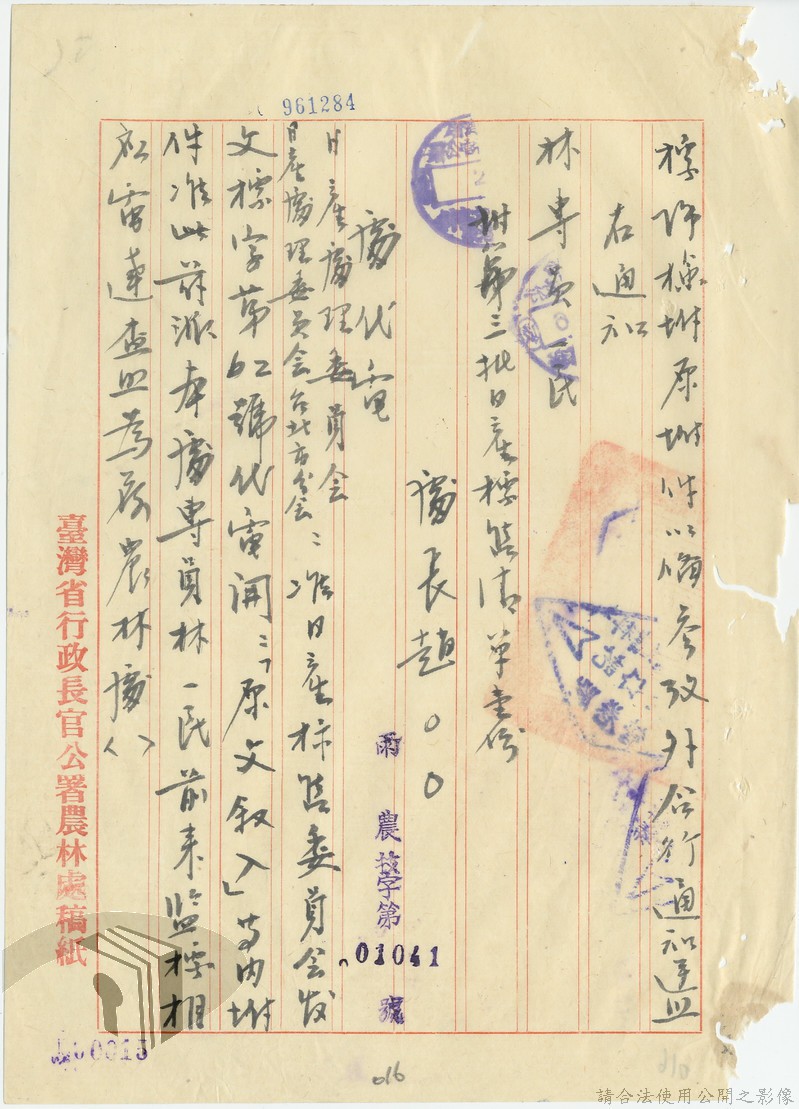 961284
標除檢附原附件以備參攷外合行通知遵照
右通知
林專員一民
附第三批日產標售清單壹份
處長趙○○
雨農技字第01041號
處代電
日產處理委員會
日產處理委員會台北市分會：准日產標售委員會發
文標字第62號代電開：「原文敘入」等內附
件准此茲派本處專員林一民前來監標相
應電達查照為荷農林處（）
臺灣省行政長官公署農林處稿紙
000015
016
請合法使用公開之影像